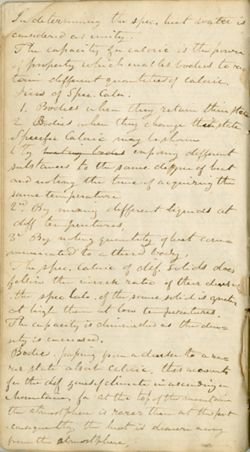 In determining the spec. heat water is
considered as unity.
The capacity for caloric is the power
or property which enables bodies to re-
tain different quantities of caloric.
Laws of Spec. Calor.
1. Bodies when they retain their state
2 Bodies when they change their state
Specific Caloric may be shown
1st By heating bodies exposing different
substances to the same degree of heat
and noting the time of acquiring the
same temperature
2nd By mixing different liquids at
diff temperatures,
3d By noting quantity of heat com-
municated to a third body,
The spec. caloric of dif. solids does
follow the inverse ratio of their density
the spec calo. of the same solid is greater
at high than at low temperatures.
The capacity is diminished as the den-
sity is increased.
Bodies passing from a denser to a ra-
rer state absorb caloric, this accounts
for the dif. of climate in ascending
mountains, for at the top of the mountain
the atmosphere is rarer than at the foot
consequently the heat is drawn away
from the atmosphere.